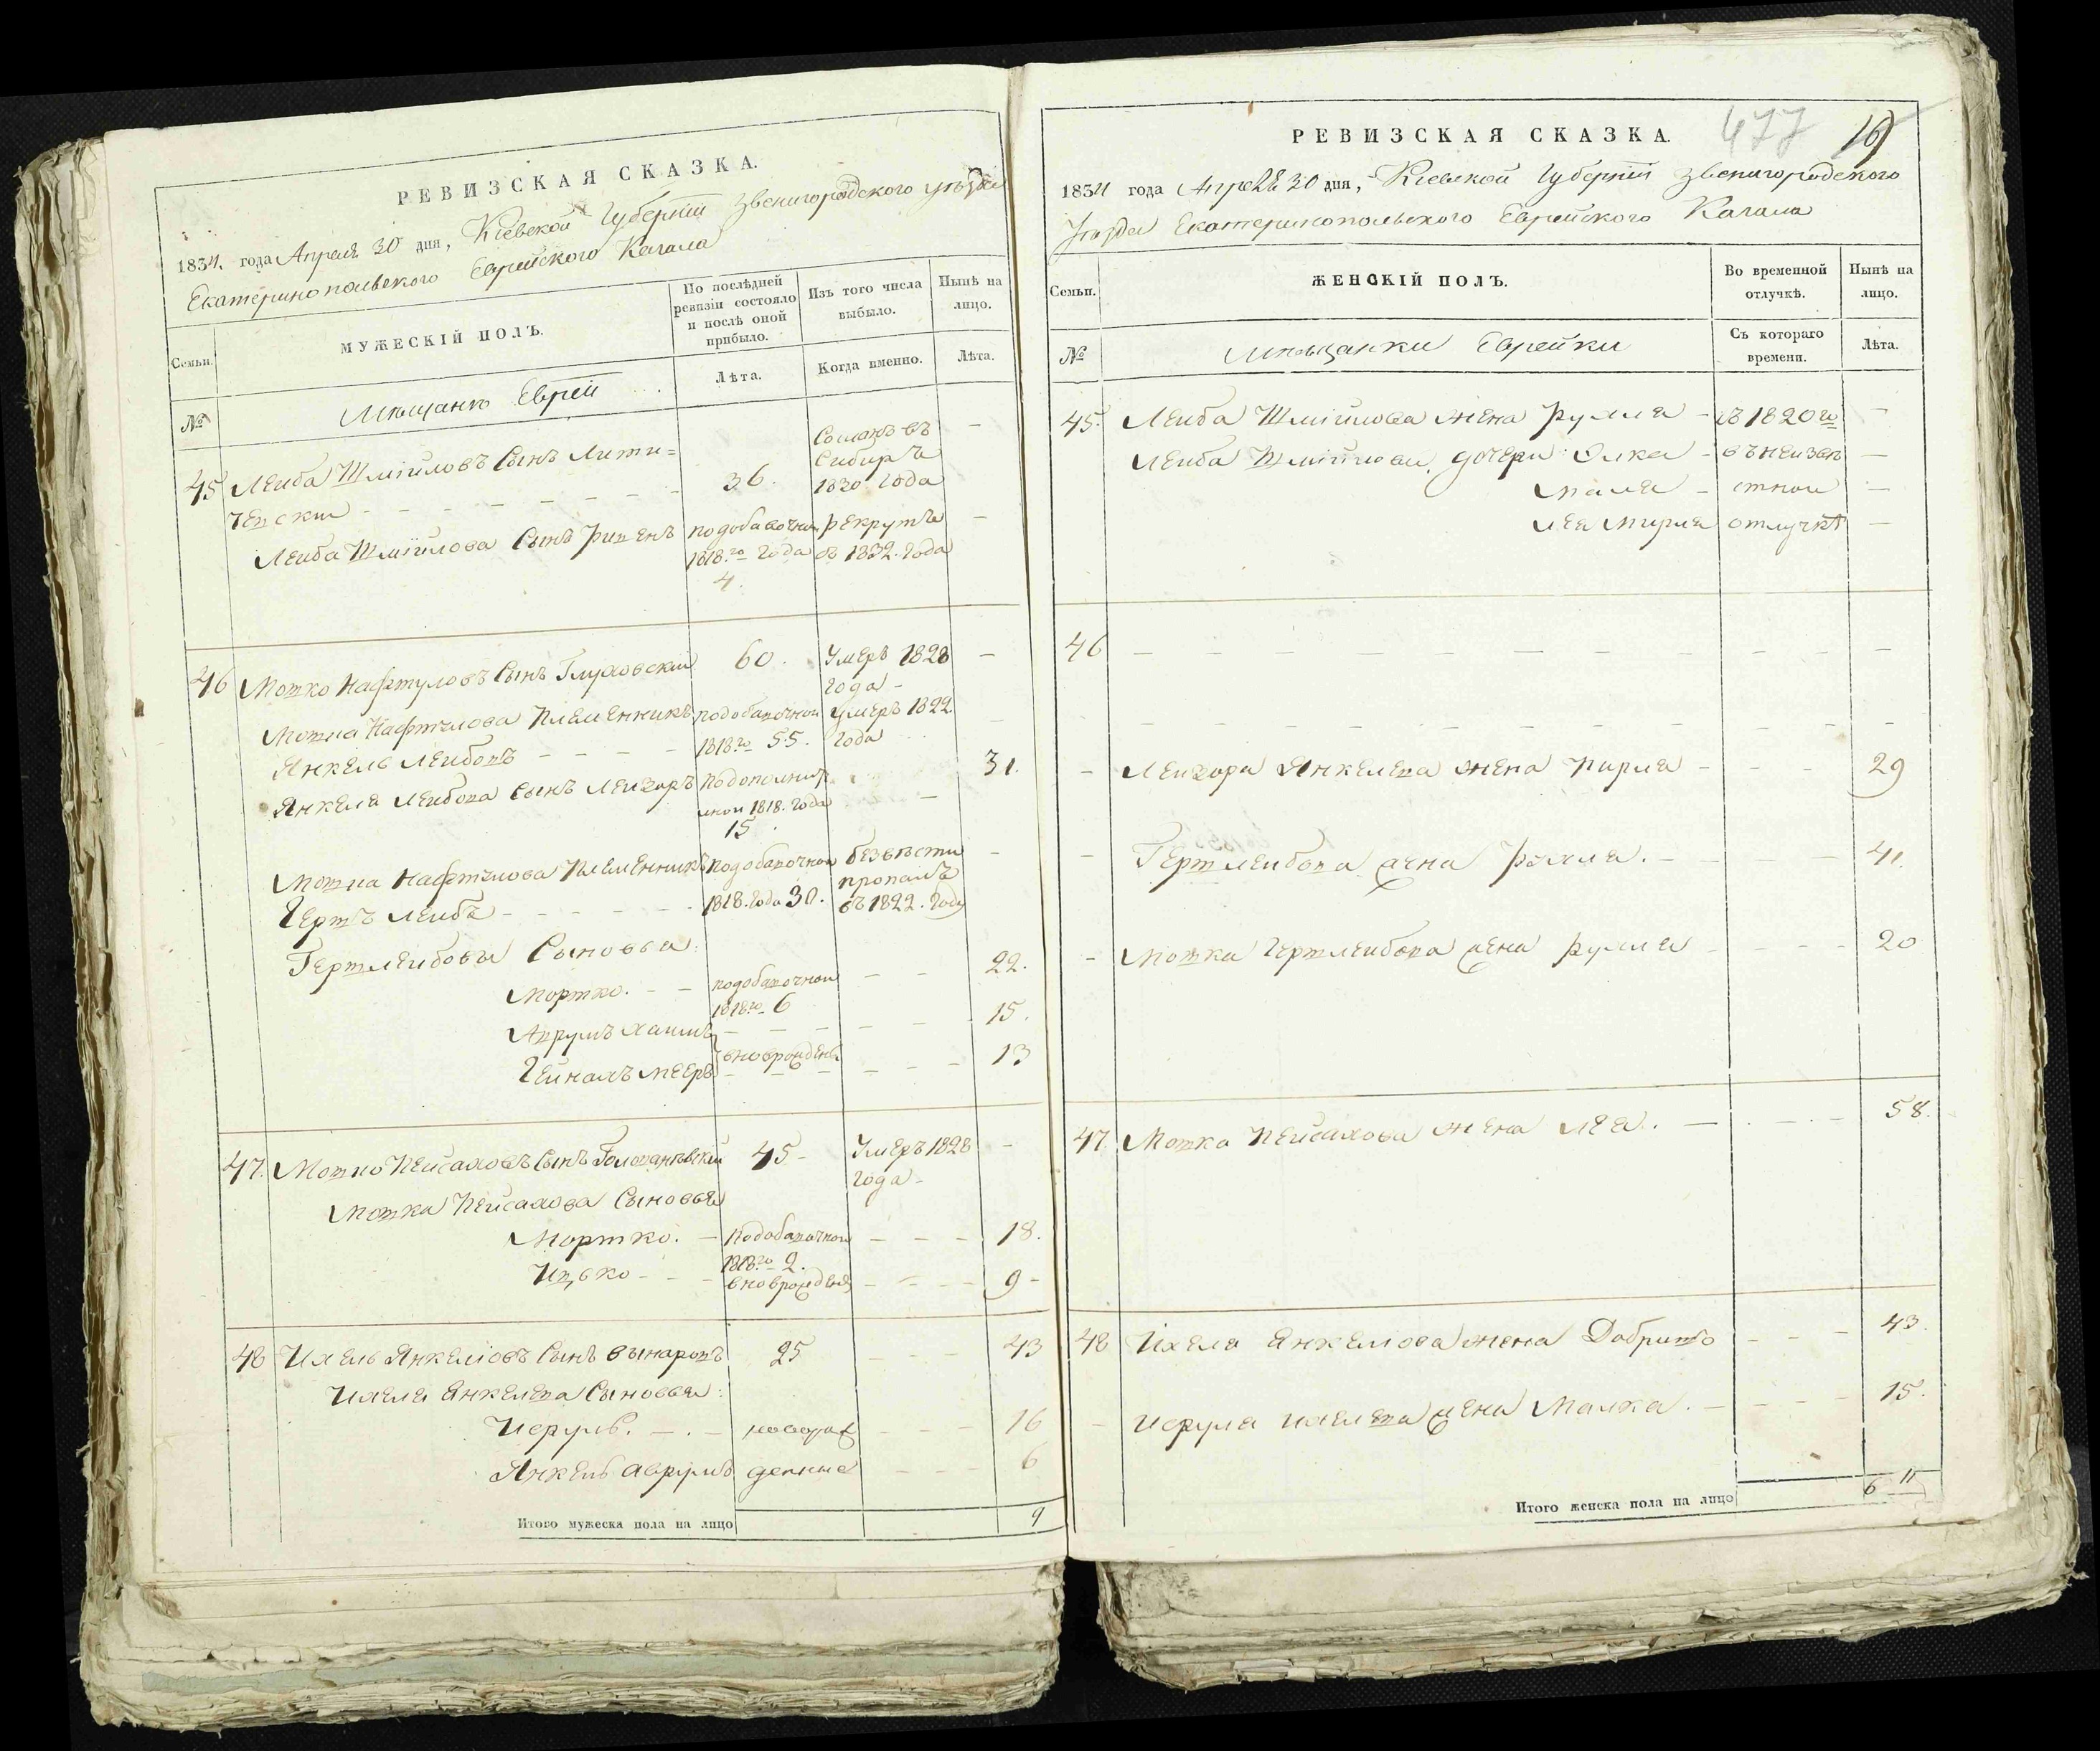 РЕВИЗСКАЯ СКАЗКА.
1834. года Апреля 30 дня, Кіевской Губерніи Звенигородского уѣзда
Екатеринопольского Еврейского Кагала
Семьи.
МУЖЕСКІЙ ПОЛЪ.
По послѣдней ревизіи состояло и послѣ оной прибыло.
Изъ того числа выбыло.
Нынѣ на лицо.
№
Мѣщанъ Еврей
Лѣта.
Когда именно.
Лѣта.
45 Леиба Шміиловъ Сынъ Лити=
ченскии 36. Сосланъ въ Сибирь 1830 года -
Леиба Шміилова Сынъ Рипенъ подобавочнои 1818.го года 4. рекрутъ въ 1832. года -
46 Мошко Нафтуловъ Сынъ Глуховскии 60. Умеръ 1828 года -
Мошка Нафтулова Племенникъ
Янкель Леибовъ подобавочнои 1818.го 55. Умеръ 1822 года
Янкеля Леибова Сынъ Леизоръ 1818. года 15 31.
Мошка Нафтулова Племенникъ
Гершъ Леибъ подобавочнои 1818. года 30. безвѣсти пропалъ въ 1822. году -
Гершлеибовы Сыновья:
Мортко. подобавочнои 1818го 6 22.
Аврумъ Хаимъ 15.
вноврожден
Гейнахъ Мееръ 13
47. Мошко Пейсаховъ Сынъ Голованевскій 45 Умеръ 1828 года -
Мошка Пейсахова Сыновья
Мортко. Подобавочнои 1818го 2. 18.
Ицько вноврожден 9
48 Ихель Янкеліовъ Сынъ Винаровъ 25 43
Ихеля Янкелева Сыновья:
Исруль. новорож 16
Янкель Аврумъ денные 6
Итого мужеска пола на лицо 9
РЕВИЗСКАЯ СКАЗКА.
477
16
1834 года Апреля 30 дня, Кіевской Губерніи Звенигородского
Уѣзда Екатеринопольского Еврейского Кагала
Семьи.
ЖЕНСКІЙ ПОЛЪ.
Во временной отлучкѣ.
Нынѣ на лицо.
№
Мѣщанки Еврейки
Съ котораго времени.
Лѣта.
45. Леиба Шміилова жена Рухля - съ 1820го -
Леиба Шміилова дочери: Элка - въ неизвѣ -
Маля - стнои -
Лея Мирля отлучкѣ -
46
- Леизора Янкелева жена Пирля 29
- Гершлеибова жена Рохля. 41.
- Мошка Гершлеибова жена Рухля 20
47. Мошка Пейсахова жена Лея. 58.
48 Ихеля Янкеліова жена Добришъ 43.
- Исруля Ихелева жена Малка. 15.
Итого женска пола на лицо 6